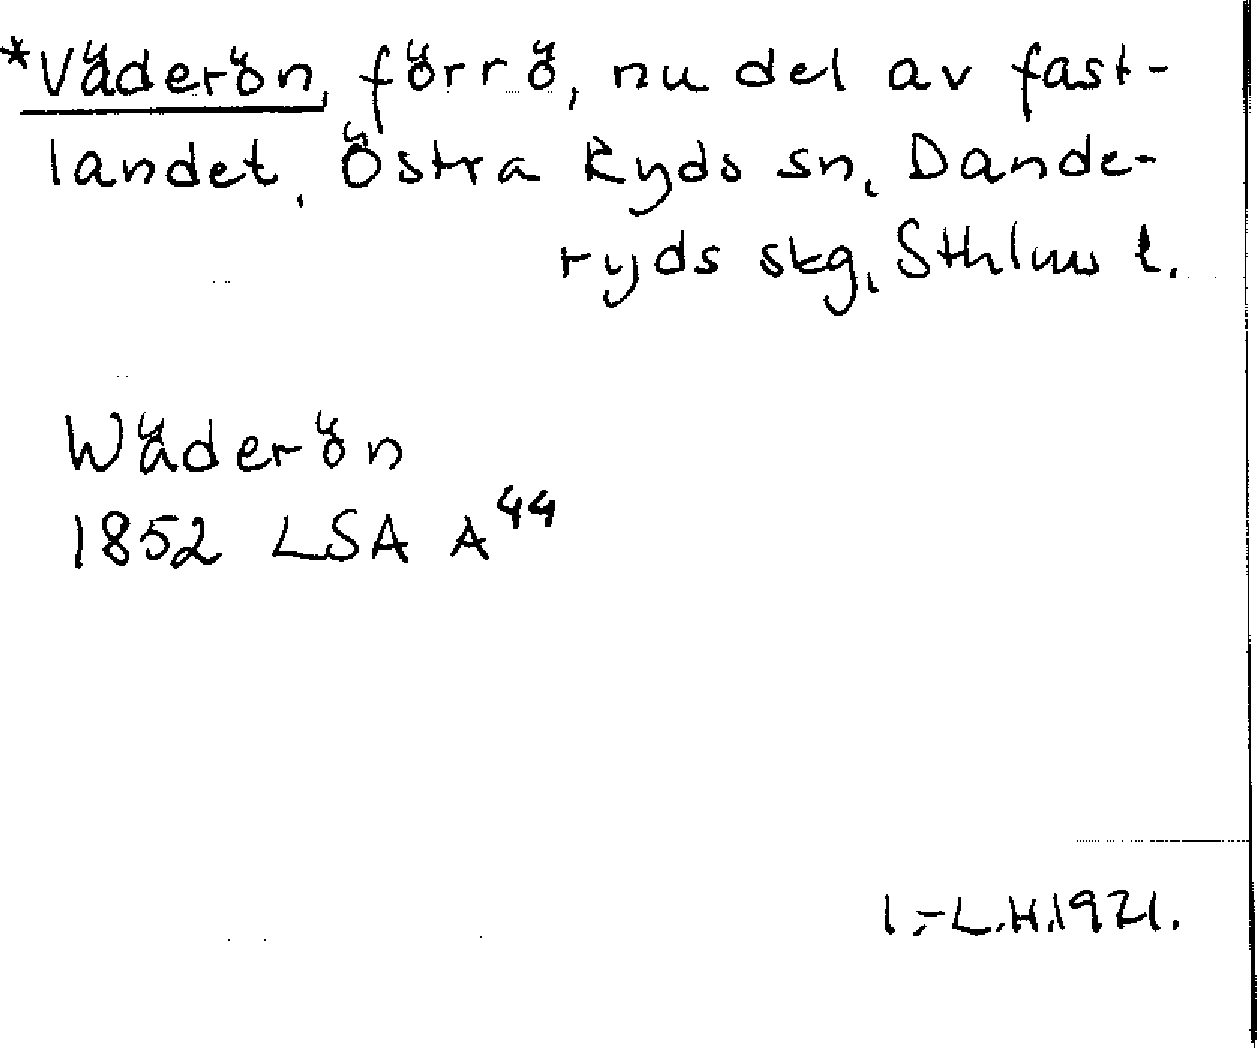 *Väderön, förr ö, nu del av fast-
landet, Östra Ryds sn, Dande-
ryds skg, Sthlms l.
Wäderön
1852 LSA A44
I.-L.H.1971.